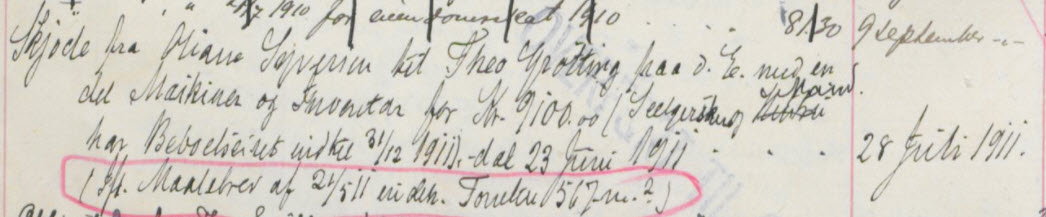 " " 27/7 1910 for eiendomsskat 1910 . . . 81.30
9 September -"-
Skjøde fra Oliane Syversen til Theo Grøtting paa d. E. med en
del Maskiner og Inventar for Kr. 9100.00 (Selgersken og Mand
har Beboelsesret indtil 31/12 1911).- dat 23 Juni 1911 . . .
28 Juli 1911.
(Ifl. Maalebrev af 21/5 11 er den. Tomten 567 m.²)